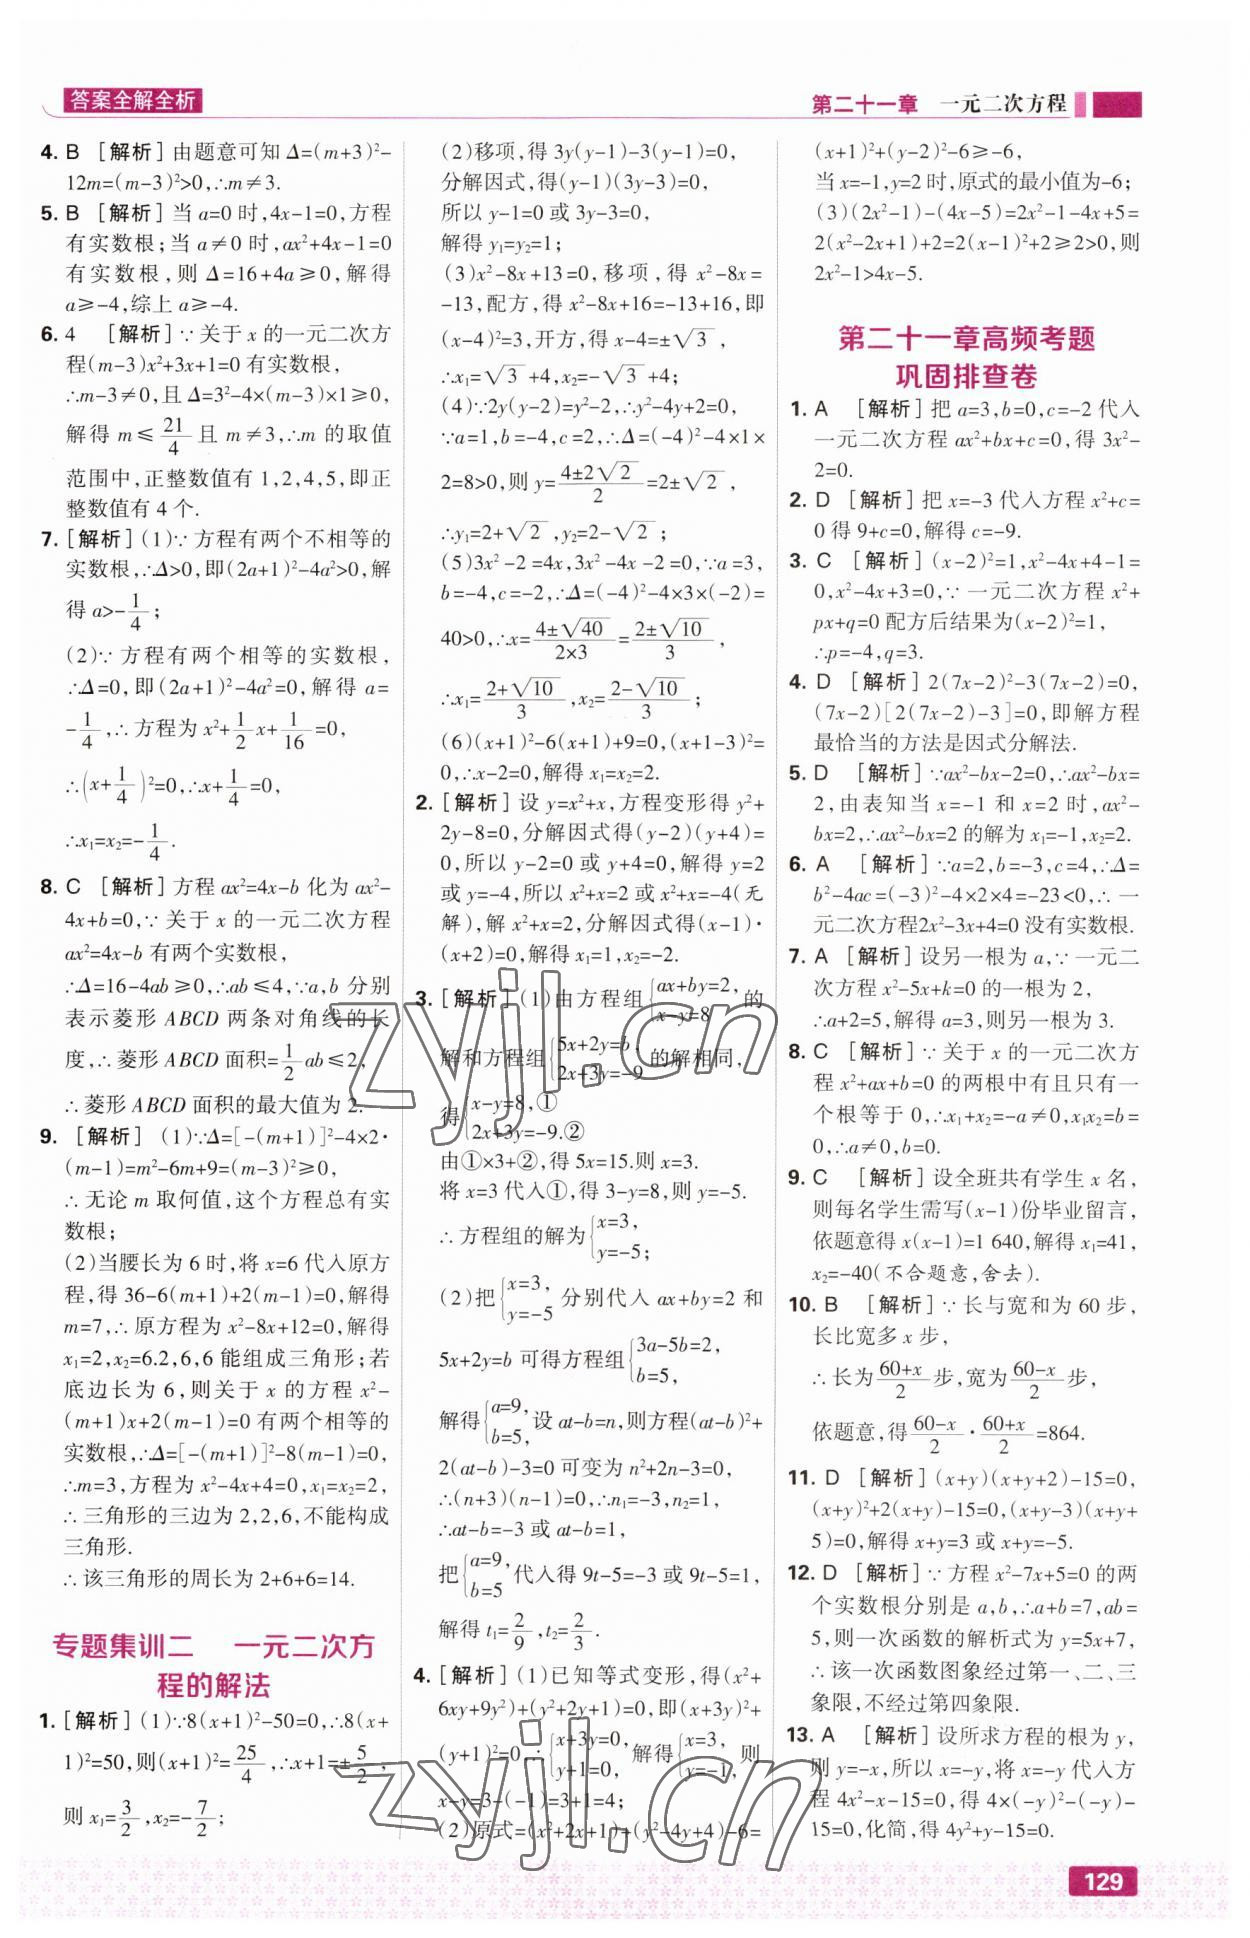 答案全解全析
第二十一章 一元二次方程
4. B [解析]由题意可知 Δ=(m+3)²-
12m=(m-3)²>0,∴m≠3.
5. B [解析]当 a=0 时,4x-1=0,方程
有实数根;当 a≠0 时,ax²+4x-1=0
有实数根,则 Δ=16+4a≥0,解得
a≥-4,综上 a≥-4.
6. 4 [解析]∵关于 x 的一元二次方
程(m-3)x²+3x+1=0 有实数根,
∴m-3≠0,且 Δ=3²-4×(m-3)×1≥0,
解得 m≤21/4 且 m≠3,∴m 的取值
范围中,正整数值有 1,2,4,5,即正
整数值有 4 个.
7. [解析](1)∵方程有两个不相等的
实数根,∴Δ>0,即(2a+1)²-4a²>0,解
得 a>-1/4;
(2)∵方程有两个相等的实数根,
∴Δ=0,即(2a+1)²-4a²=0,解得 a=
-1/4,∴方程为 x²+1/2x+1/16=0,
∴(x+1/4)²=0,∴x+1/4=0,
∴x₁=x₂=-1/4.
8. C [解析]方程 ax²=4x-b 化为 ax²-
4x+b=0,∵关于 x 的一元二次方程
ax²=4x-b 有两个实数根,
∴Δ=16-4ab≥0,∴ab≤4,∵a,b 分别
表示菱形 ABCD 两条对角线的长
度,∴菱形 ABCD 面积=1/2ab≤2,
∴菱形 ABCD 面积的最大值为 2.
9. [解析] (1)∵Δ=[-(m+1)]²-4×2·
(m-1)=m²-6m+9=(m-3)²≥0,
∴无论 m 取何值,这个方程总有实
数根;
(2)当腰长为 6 时,将 x=6 代入原方
程,得 36-6(m+1)+2(m-1)=0,解得
m=7,∴原方程为 x²-8x+12=0,解得
x₁=2,x₂=6.2,6,6 能组成三角形;若
底边长为 6,则关于 x 的方程 x²-
(m+1)x+2(m-1)=0 有两个相等的
实数根,∴Δ=[-(m+1)]²-8(m-1)=0,
∴m=3,方程为 x²-4x+4=0,x₁=x₂=2,
∴三角形的三边为 2,2,6,不能构成
三角形.
∴该三角形的周长为 2+6+6=14.
专题集训二 一元二次方
程的解法
1. [解析](1)∵8(x+1)²-50=0,∴8(x+
1)²=50,则(x+1)²=25/4,∴x+1=±5/2,
则 x₁=3/2,x₂=-7/2;
(2)移项,得 3y(y-1)-3(y-1)=0,
分解因式,得(y-1)(3y-3)=0,
所以 y-1=0 或 3y-3=0,
解得 y₁=y₂=1;
(3)x²-8x+13=0,移项,得 x²-8x=
-13,配方,得 x²-8x+16=-13+16,即
(x-4)²=3,开方,得 x-4=±√3,
∴x₁=√3+4,x₂=-√3+4;
(4)∵2y(y-2)=y²-2,∴y²-4y+2=0,
∵a=1,b=-4,c=2,∴Δ=(-4)²-4×1×
2=8>0,则 y=(4±2√2)/2=2±√2,
∴y₁=2+√2,y₂=2-√2;
(5)3x²-2=4x,3x²-4x-2=0,∵a=3,
b=-4,c=-2,∴Δ=(-4)²-4×3×(-2)=
40>0,∴x=(4±√40)/(2×3)=(2±√10)/3,
∴x₁=(2+√10)/3,x₂=(2-√10)/3;
(6)(x+1)²-6(x+1)+9=0,(x+1-3)²=
0,∴x-2=0,解得 x₁=x₂=2.
2. [解析]设 y=x²+x,方程变形得 y²+
2y-8=0,分解因式得(y-2)(y+4)=
0,所以 y-2=0 或 y+4=0,解得 y=2
或 y=-4,所以 x²+x=2 或 x²+x=-4(无
解),解 x²+x=2,分解因式得(x-1)·
(x+2)=0,解得 x₁=1,x₂=-2.
3. [解析](1)由方程组{ax+by=2, x-y=8 的
解和方程组{5x+2y=b, 2x+3y=-9 的解相同,
得{x-y=8,① 2x+3y=-9.②
由①×3+②,得 5x=15.则 x=3.
将 x=3 代入①,得 3-y=8,则 y=-5.
∴方程组的解为{x=3, y=-5;
(2)把{x=3, y=-5 分别代入 ax+by=2 和
5x+2y=b 可得方程组{3a-5b=2, b=5,
解得{a=9, b=5, 设 at-b=n,则方程(at-b)²+
2(at-b)-3=0 可变为 n²+2n-3=0,
∴(n+3)(n-1)=0,∴n₁=-3,n₂=1,
∴at-b=-3 或 at-b=1,
把{a=9, b=5 代入得 9t-5=-3 或 9t-5=1,
解得 t₁=2/9,t₂=2/3.
4. [解析](1)已知等式变形,得(x²+
6xy+9y²)+(y²+2y+1)=0,即(x+3y)²+
(y+1)²=0,∴{x+3y=0, y+1=0, 解得{x=3, y=-1, 则
x-y=3-(-1)=3+1=4;
(2)原式=(x²+2x+1)+(y²-4y+4)-6=
(x+1)²+(y-2)²-6≥-6,
当 x=-1,y=2 时,原式的最小值为-6;
(3)(2x²-1)-(4x-5)=2x²-1-4x+5=
2(x²-2x+1)+2=2(x-1)²+2≥2>0,则
2x²-1>4x-5.
第二十一章高频考题
巩固排查卷
1. A [解析]把 a=3,b=0,c=-2 代入
一元二次方程 ax²+bx+c=0,得 3x²-
2=0.
2. D [解析]把 x=-3 代入方程 x²+c=
0 得 9+c=0,解得 c=-9.
3. C [解析](x-2)²=1,x²-4x+4-1=
0,x²-4x+3=0,∵一元二次方程 x²+
px+q=0 配方后结果为(x-2)²=1,
∴p=-4,q=3.
4. D [解析]2(7x-2)²-3(7x-2)=0,
(7x-2)[2(7x-2)-3]=0,即解方程
最恰当的方法是因式分解法.
5. D [解析]∵ax²-bx-2=0,∴ax²-bx=
2,由表知当 x=-1 和 x=2 时,ax²-
bx=2,∴ax²-bx=2 的解为 x₁=-1,x₂=2.
6. A [解析]∵a=2,b=-3,c=4,∴Δ=
b²-4ac=(-3)²-4×2×4=-23<0,∴一
元二次方程2x²-3x+4=0 没有实数根.
7. A [解析]设另一根为 a,∵一元二
次方程 x²-5x+k=0 的一根为 2,
∴a+2=5,解得 a=3,则另一根为 3.
8. C [解析]∵关于 x 的一元二次方
程 x²+ax+b=0 的两根中有且只有一
个根等于 0,∴x₁+x₂=-a≠0,x₁x₂=b=
0,∴a≠0,b=0.
9. C [解析]设全班共有学生 x 名,
则每名学生需写(x-1)份毕业留言,
依题意得 x(x-1)=1 640,解得 x₁=41,
x₂=-40(不合题意,舍去).
10. B [解析]∵长与宽和为 60 步,
长比宽多 x 步,
∴长为(60+x)/2步,宽为(60-x)/2步,
依题意,得(60-x)/2·(60+x)/2=864.
11. D [解析](x+y)(x+y+2)-15=0,
(x+y)²+2(x+y)-15=0,(x+y-3)(x+y+
5)=0,解得 x+y=3 或 x+y=-5.
12. D [解析]∵方程 x²-7x+5=0 的两
个实数根分别是 a,b,∴a+b=7,ab=
5,则一次函数的解析式为 y=5x+7,
∴该一次函数图象经过第一、二、三
象限,不经过第四象限.
13. A [解析]设所求方程的根为 y,
则 y=-x,所以 x=-y,将 x=-y 代入方
程 4x²-x-15=0,得 4×(-y)²-(-y)-
15=0,化简,得 4y²+y-15=0.
zyjl.cn
zyjl.cn
129